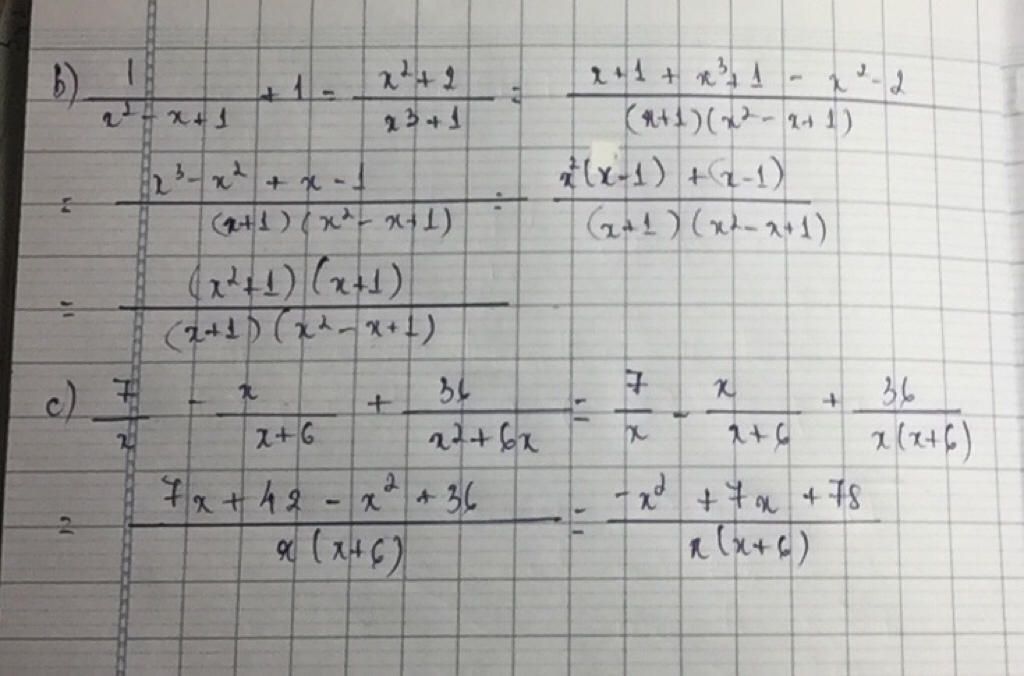 b) 1/(x² - x+1) + 1 - (x² + 2)/(x³ + 1) = (x+1 + x³+1 - x² - 2)/((x+1)(x² - x+1))
= (x³ - x² + x - 1)/((x+1)(x² - x+1)) = (x²(x-1) + (x-1))/((x+1)(x² - x+1))
= ((x²+1)(x+1))/((x+1)(x² - x+1))
c) 7/x - x/(x+6) + 36/(x²+6x) = 7/x - x/(x+6) + 36/(x(x+6))
= (7x + 42 - x² + 36)/(x(x+6)) = (-x² + 7x + 78)/(x(x+6))